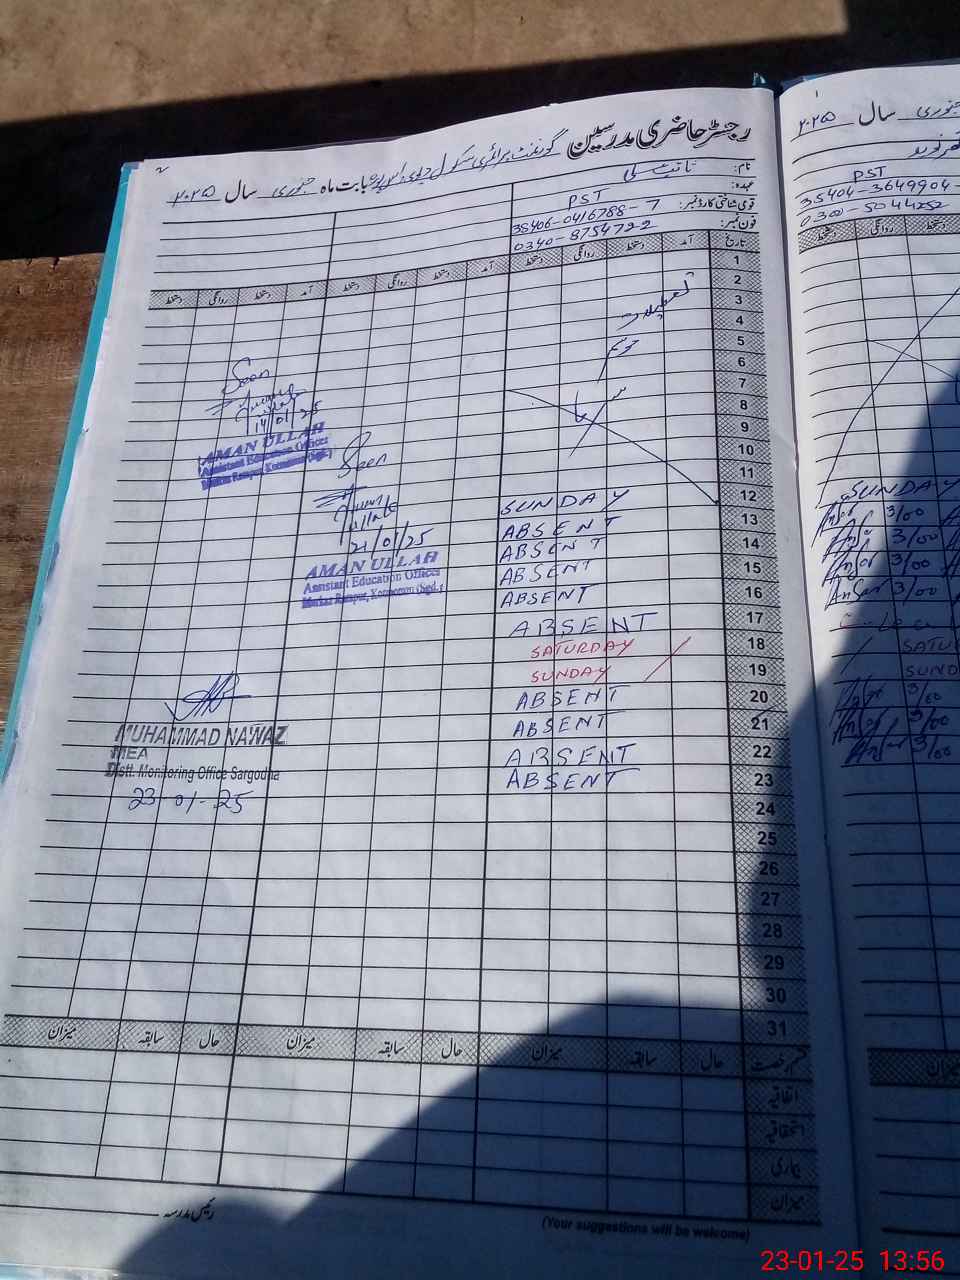 رجسٹر حاضری مدرسین گورنمنٹ پرائمری سکول بابت ماہ جنوری سال ۲۰۲۵
نام:
عہدہ: PST
قومی شناختی کارڈ نمبر: 38406-0416788-7
فون نمبر: 0340-8754722
تاریخ آمد دستخط روانگی دستخط آمد دستخط روانگی دستخط آمد دستخط روانگی دستخط
1
2
3
تعطیلات
4
5
موسم
6
7
سرما
8
9
10
11
12 SUNDAY
13 ABSENT
14 ABSENT
15 ABSENT
16 ABSENT
17 ABSENT
18 SATURDAY
19 SUNDAY
20 ABSENT
21 ABSENT
22 ABSENT
23 ABSENT
24
25
26
27
28
29
30
31
Seen
14/01/25
AMAN ULLAH
Assistant Education Officer
Seen
21/01/25
AMAN ULLAH
Assistant Education Officer
MUHAMMAD NAWAZ
MEA
Distt. Monitoring Office Sargodha
23-01-25
قسم رخصت حال سابقہ میزان حال سابقہ میزان حال سابقہ میزان
اتفاقیہ
استحقاقیہ
بیماری
میزان
رئیس مدرسہ
(Your suggestions will be welcome)
جنوری سال ۲۰۲۵
PST
35404-3649904-
0300-5044252
روانگی دستخط
SUNDAY
3/00
3/00
3/00
Ansar 3/00
SATUR
SUND
3/00
3/00
3/00
میزان
23-01-25 13:56